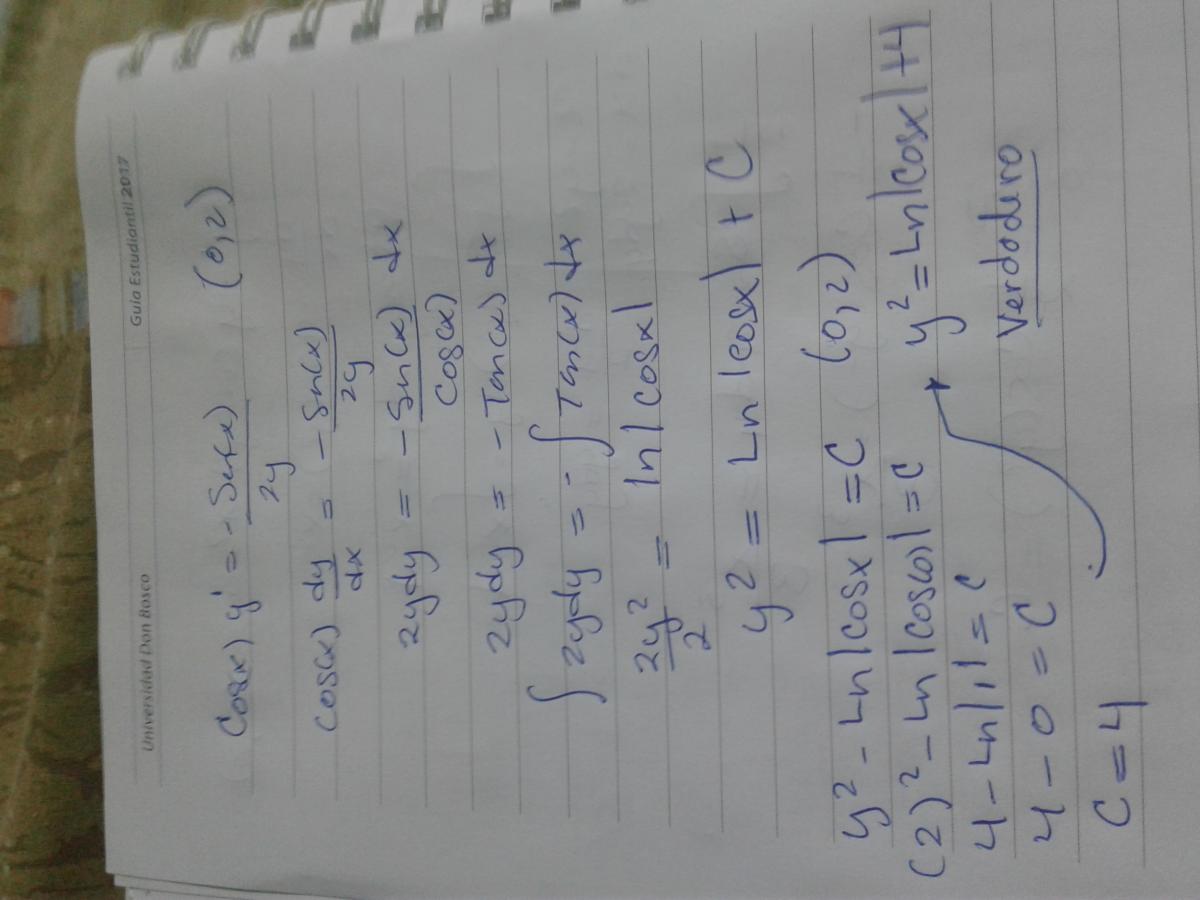 Universidad Don Bosco Guía Estudiantil 2017
Cos(x) y' = -Sen(x)/2y (0,2)
Cos(x) dy/dx = -Sn(x)/2y
2ydy = -Sn(x)/Cos(x) dx
2ydy = -Tan(x) dx
∫ 2ydy = -∫ Tan(x) dx
2y²/2 = ln|cosx|
y² = Ln|cosx| + C
y² - Ln|cosx| = C (0,2)
(2)² - Ln|cos(0)| = C y² = Ln|cosx| + 4
4 - Ln|1| = C Verdadero
4 - 0 = C
C = 4